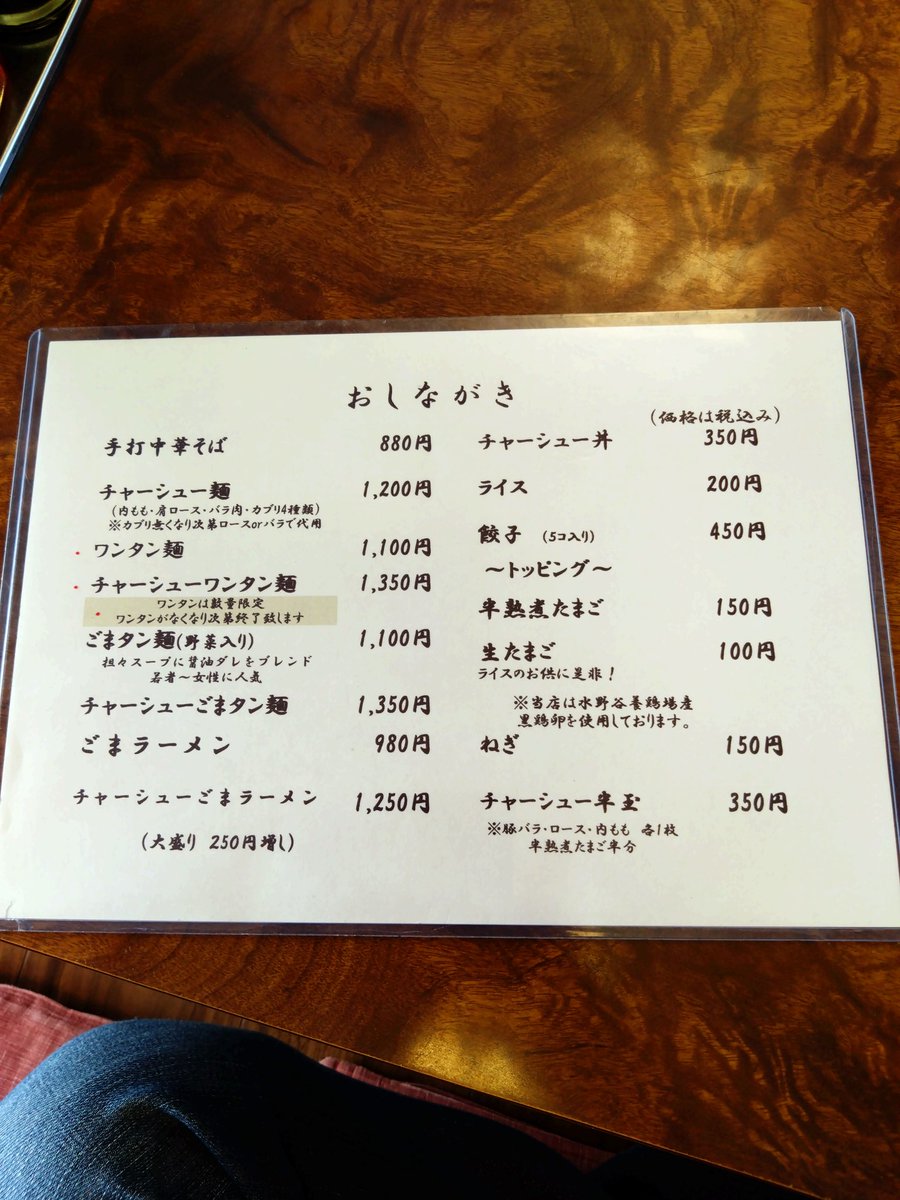 おしながき
(価格は税込み)
手打中華そば 880円
チャーシュー麺 1,200円
(内もも・肩ロース・バラ肉・カブリ4種類)
※カブリ無くなり次第ロースorバラで代用
ワンタン麺 1,100円
チャーシューワンタン麺 1,350円
ワンタンは数量限定
ワンタンがなくなり次第終了致します
ごまタン麺(野菜入り) 1,100円
担々スープに醤油ダレをブレンド
若者～女性に人気
チャーシューごまタン麺 1,350円
ごまラーメン 980円
チャーシューごまラーメン 1,250円
(大盛り 250円増し)
チャーシュー丼 350円
ライス 200円
餃子 (5コ入り) 450円
～トッピング～
半熟煮たまご 150円
生たまご 100円
ライスのお供に是非!
※当店は水野谷養鶏場産
黒鶏卵を使用しております。
ねぎ 150円
チャーシュー半玉 350円
※豚バラ・ロース・内もも 各1枚
半熟煮たまご半分